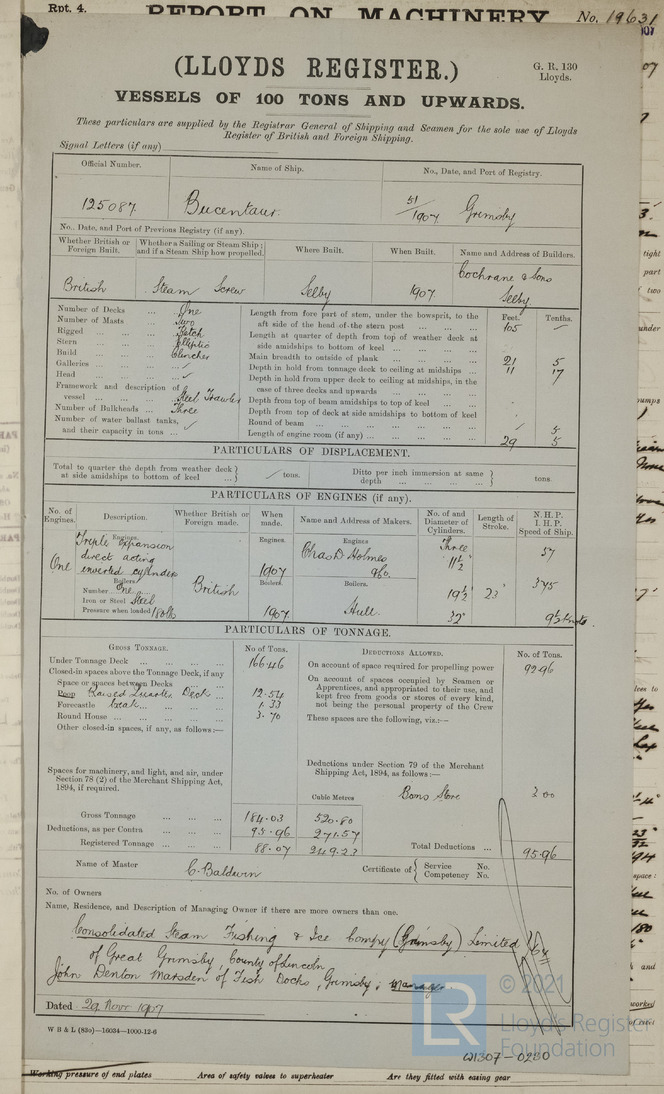 Rpt. 4. REPORT ON MACHINERY No. 19631
(LLOYDS REGISTER.)
G. R. 130
Lloyds.
VESSELS OF 100 TONS AND UPWARDS.
These particulars are supplied by the Registrar General of Shipping and Seamen for the sole use of Lloyds
Register of British and Foreign Shipping.
Signal Letters (if any)
Official Number. Name of Ship. No., Date, and Port of Registry.
125087. Bucentaur. 51/1907 Grimsby
No., Date, and Port of Previous Registry (if any).
Whether British or Foreign Built. Whether a Sailing or Steam Ship; and if a Steam Ship how propelled. Where Built. When Built. Name and Address of Builders.
British Steam Screw Selby 1907. Cochrane & Sons
Selby
Number of Decks ... One
Number of Masts ... Two
Rigged ... Ketch
Stern ... Elliptic
Build ... Clincher
Galleries ...
Head ...
Framework and description of
vessel ... Steel Trawler
Number of Bulkheads ... Three
Number of water ballast tanks,
and their capacity in tons ...
Feet. Tenths.
Length from fore part of stem, under the bowsprit, to the
aft side of the head of the stern post ... 105
Length at quarter of depth from top of weather deck at
side amidships to bottom of keel ...
Main breadth to outside of plank ... 21 5
Depth in hold from tonnage deck to ceiling at midships ... 11 17
Depth in hold from upper deck to ceiling at midships, in the
case of three decks and upwards ...
Depth from top of beam amidships to top of keel ...
Depth from top of deck at side amidships to bottom of keel
Round of beam ... 5
Length of engine room (if any) ... 29 5
PARTICULARS OF DISPLACEMENT.
Total to quarter the depth from weather deck
at side amidships to bottom of keel ... tons.
Ditto per inch immersion at same
depth ... tons.
PARTICULARS OF ENGINES (if any).
No. of Engines. Description. Whether British or Foreign made. When made. Name and Address of Makers. No. of and Diameter of Cylinders. Length of Stroke. N. H. P. I. H. P. Speed of Ship.
Engines. Engines. Engines
One Triple expansion
direct acting
inverted cylinder
British 1907 Chas D. Holmes
& Co. Three
11½
19½
32" 23" 57
375
9½ knots.
Boilers Boilers. Boilers.
Number One
Iron or Steel Steel
Pressure when loaded 180 lb 1907 Hull.
PARTICULARS OF TONNAGE.
GROSS TONNAGE. No of Tons.
Under Tonnage Deck ... 166.46
Closed-in spaces above the Tonnage Deck, if any
Space or spaces between Decks
Poop Raised Quarter Deck 12.54
Forecastle break 1.33
Round House ... 3.70
Other closed-in spaces, if any, as follows:—
Spaces for machinery, and light, and air, under
Section 78 (2) of the Merchant Shipping Act,
1894, if required.
DEDUCTIONS ALLOWED. No. of Tons.
On account of space required for propelling power 92.96
On account of spaces occupied by Seamen or
Apprentices, and appropriated to their use, and
kept free from goods or stores of every kind,
not being the personal property of the Crew
These spaces are the following, viz.:—
Deductions under Section 79 of the Merchant
Shipping Act, 1894, as follows:—
Cubic Metres Bosns Store 3.00
Gross Tonnage ... 184.03 520.80
Deductions, as per Contra ... 95.96 271.57
Registered Tonnage ... 88.07 249.23
Total Deductions ... 95.96
Name of Master C. Baldwin
Certificate of Service No.
Competency No.
No. of Owners
Name, Residence, and Description of Managing Owner if there are more owners than one.
Consolidated Steam Fishing & Ice Compy (Grimsby) Limited
of Great Grimsby, County of Lincoln
John Denton Marsden of Fish Docks, Grimsby, Manager
Dated 29 Novr 1907
W B & L (83o)—16034—1000-12-6
© 2021
Lloyd's Register
Foundation
LR
W1307-0230
Working pressure of end plates Area of safety valves to superheater Are they fitted with easing gear